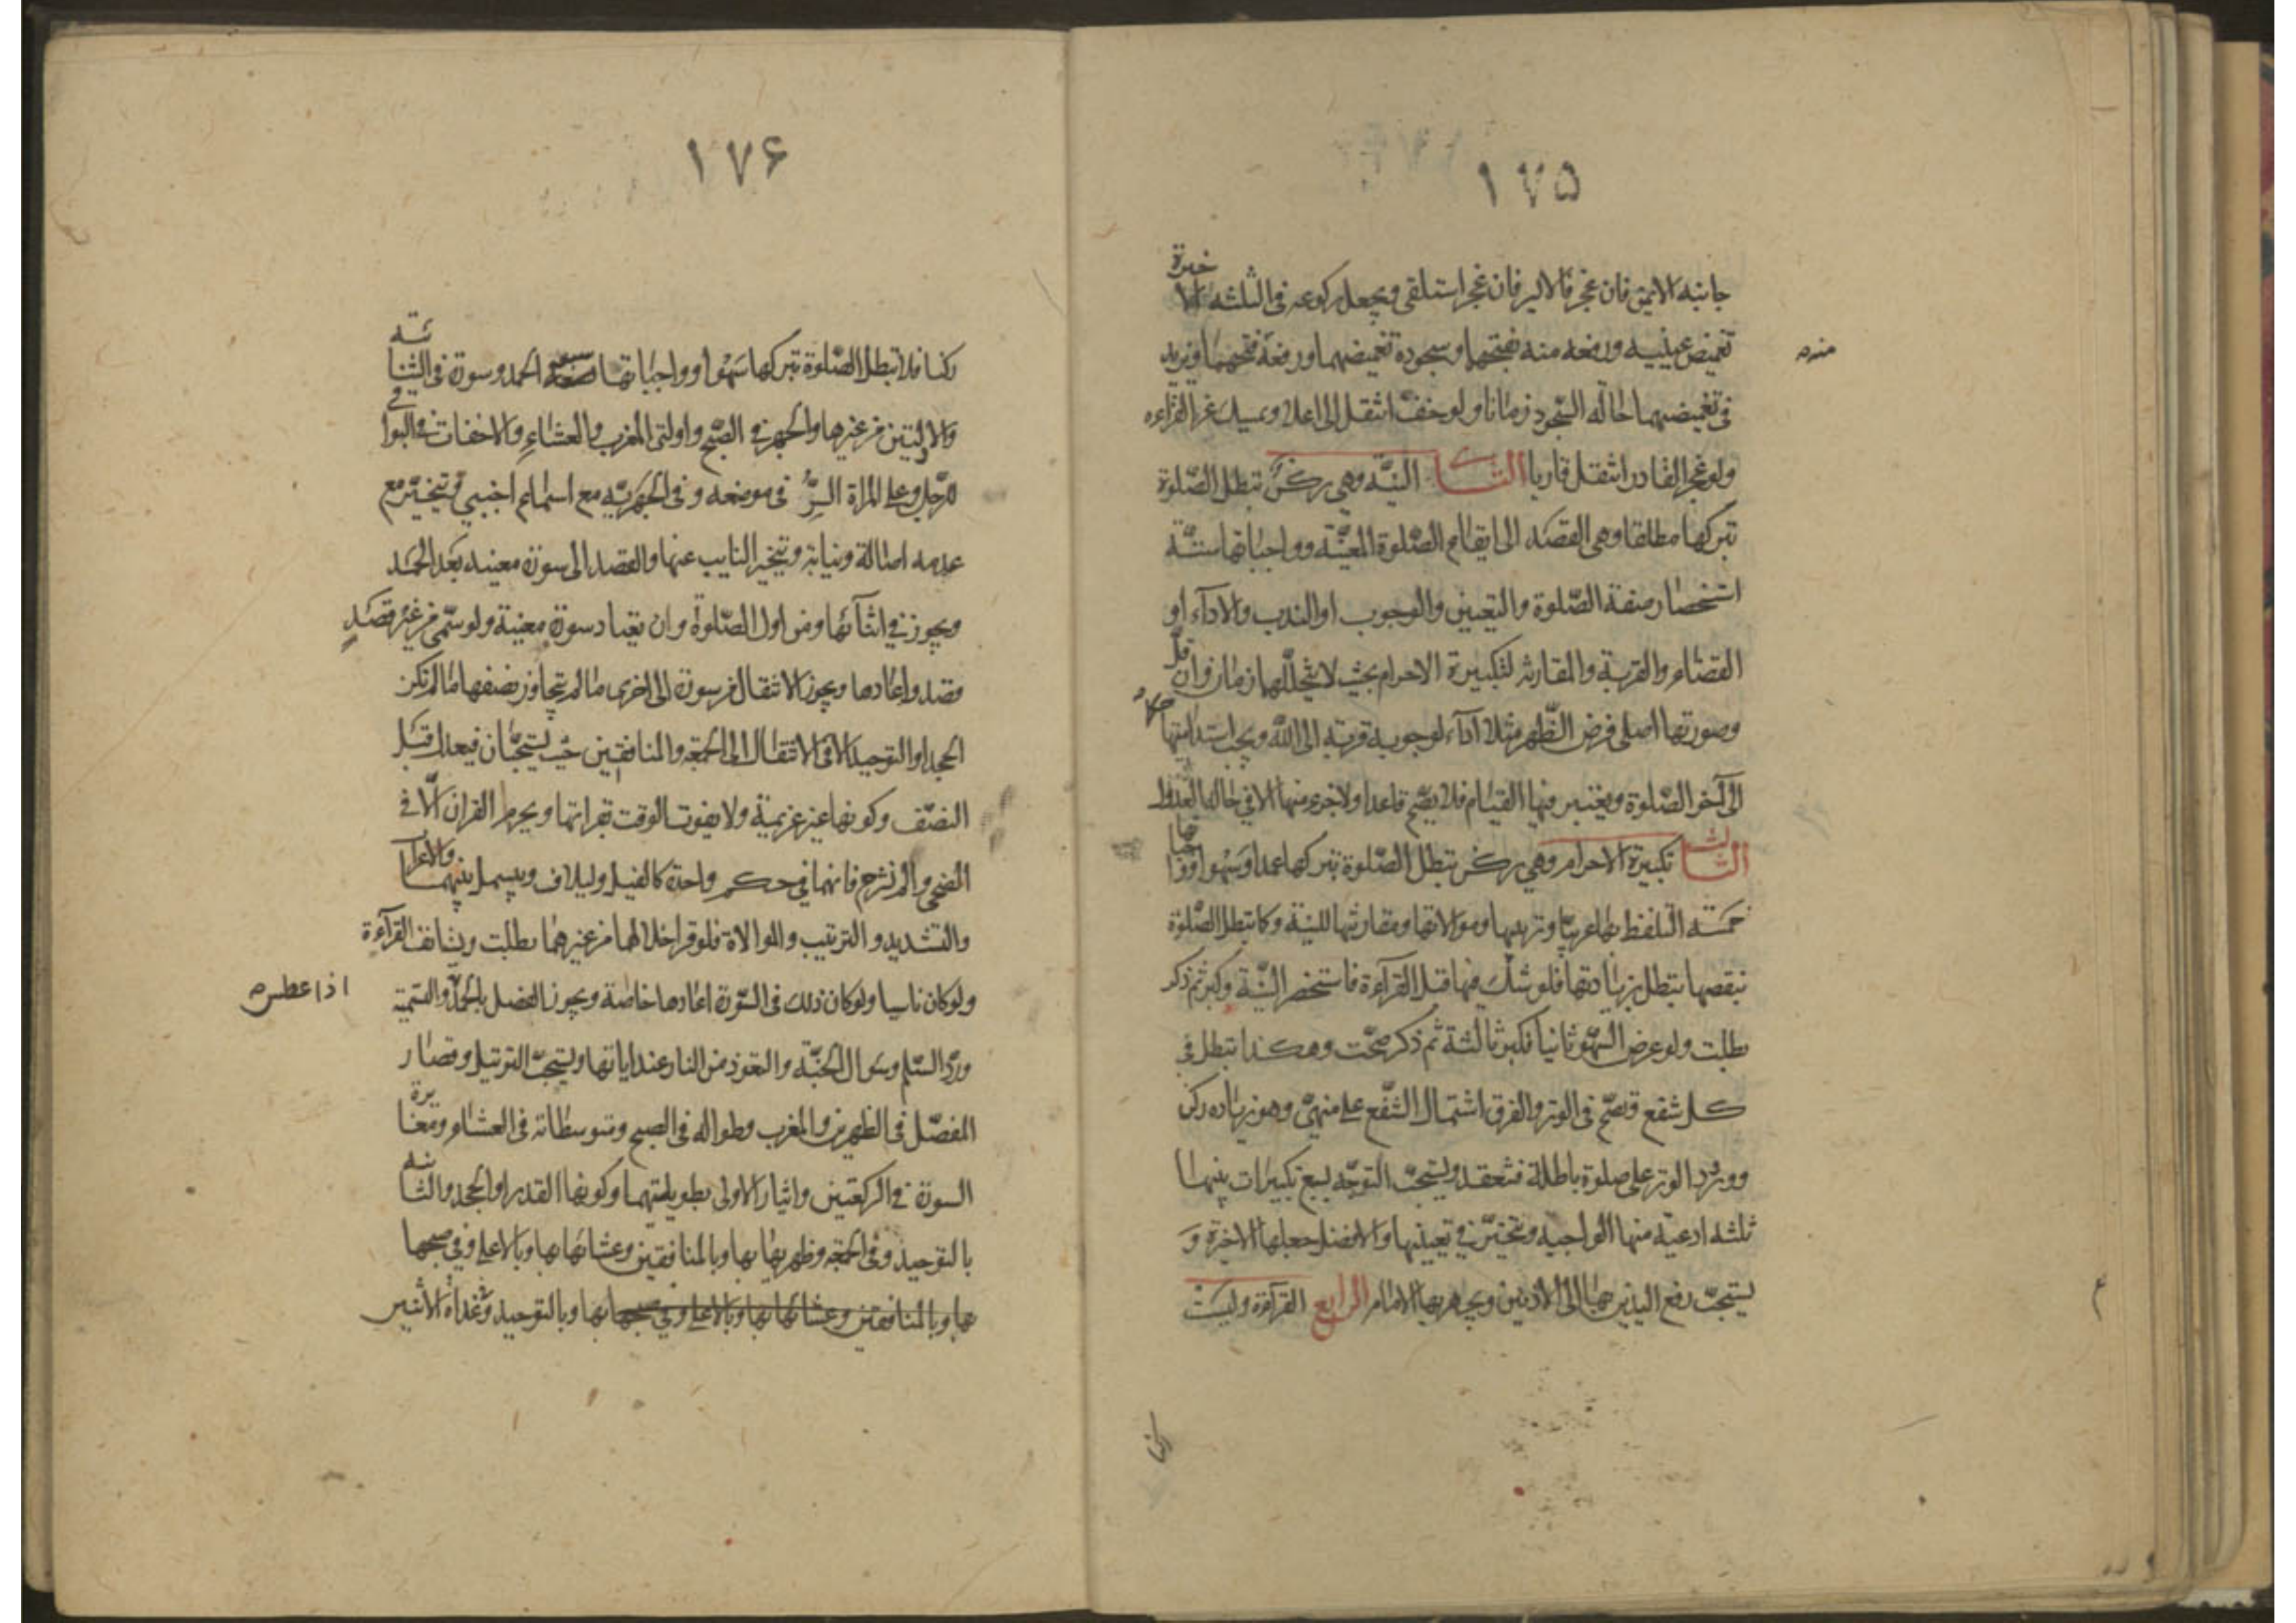 ١٧۵
جانبه الايمن فان عجز فالايسر فان عجز استلقى ويجعل ركوعه فى الثلثه الاخيرة
تغميض عينيه ورفعه منه بفتحهما وسجوده تغميضهما ورفعه فتحهما ويزيد
منه
فى تغميضهما حاله السجود زمانا ولو خفّ انتقل الى اعلا ويمسك عن القراءه
ولو عجز القادر انتقل قاريا الثانى النيّة وهي ركن تبطل الصّلوة
بتركها مطلقا وهى القصد الى ايقاع الصّلوة المعيّنة وواجباتها ستّة
استحضار صفة الصّلوة والتعيين والوجوب او الندب والاداء او
القضاء والقربة والمقارنة لتكبيرة الاحرام بحيث لا يتخللهما زمان وان قلّ
وصورتها اصلى فرض الظّهر مثلا اداء لوجوبه قربة الى الله ويجب استدامتها حكما
الى آخر الصّلوة ويعتبر فيها القيام فلا يصّح قاعدا ولا جزء منها الا فى حالة العذر
الثالث تكبيرة الاحرام وهي ركن تبطل الصّلوة بتركها عمدا وسهوا وواجباتها
خمسة التلفظ بها عربيّا وترتيبها وموالاتها ومقارنتها للنيّة وكما تبطل الصّلوة
بنقصها تبطل بزيادتها فلو شكّ فيها قبل القرآءة فاستحضر النيّة وكبر ثم ذكر
بطلت ولو عرض السّهو ثانيا فكبر ثالثة ثم ذكر صحّت وهكذا تبطل فى
كل شفع وتصّح فى الوتر والفرق اشتمال الشّفع على منهيّ وهو زياده ركن
وورود الوتر على صلوة باطلة فتنعقد ويستحبّ التوجّه بسبع تكبيرات بينها
ثلثه ادعية منها الواجبة ويتخيّر فى تعيينها والافضل جعلها الاخيرة و
يستحبّ رفع اليدين بها الى الاذنين ويجهر بها الامام الرابع القرآءة وليست
١٧۶
ركنا فلا تبطل الصّلوة بتركها سَهْوا وواجباتها الحمد وسورة فى الثنائية
والاوليين من غيرها والجهر فى الصّبح واولتى المغرب والعشاءِ والاخفات فى البواقى
للرّجل وعلى المراة السرُّ فى موضعه وفى الجهريّه مع استماع اجنبيّ وتتخيّر مع
عدمه اصالة ونيابة ويتخير النايب عنها والقصد الى سورة معينه بعد الحمد
ويجوز فى اثنآئها ومن اول الصّلوة وان يعتاد سورة معينة ولو سمّى من غير قصدٍ
قصد واعادها ويجوز الانتقال من سورة الى اخرى ما لم يتجاوز نصفها ما لم تكن
الجحد او التوحيد الا فى الانتقال الى الجمعة والمنافقين حيث يستحبّان فيعدل قبل
النصّف وكونها غير عزيمة ولا يفوت الوقت بقراتها ويحرم القران الّا فى
الضحى والم نشرح فانهما فى حكم واحدة كالفيل وليلاف ويبسمل بينهما والاعراب
والتشديد والترتيب والموالاة فلو قرا خلالهما من غيرهما بطلت ويستانف القرآءة
ولو كان ناسيا ولو كان ذلك فى السّورة اعادها خاصّة ويجوز الفصل بالحمد والتسمية
اذا عطس
وردّ السّلم وسؤال الجنّة والتعوذ من النار عند اياتها ويستحبّ الترتيل وقصار
المفصّل فى الظهرين والمغرب وطواله فى الصبح ومتوسطاته فى العشاء ومغايرة
السورة فى الركعتين وايثار الاولى بطويلتهما وكونها القدر او الجحد والثانية
بالتوحيد وفى الجمعه وظهريها بها وبالمنافقين وعشائها بها وبالاعلى وفى صبحها
بها وبالمنافقين وعشائها بها وبالاعلى وفى صبحها بها وبالتوحيد وغداة الاثنين